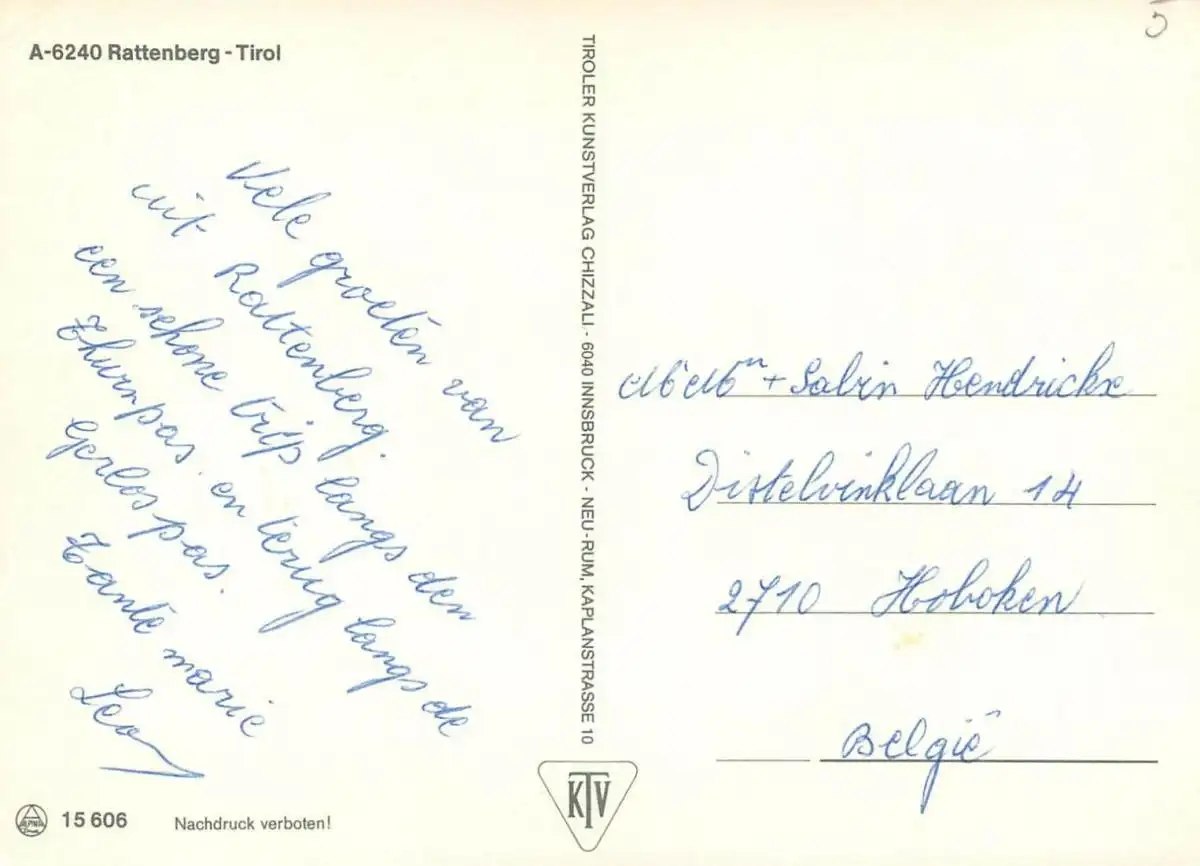 A-6240 Rattenberg - Tirol
Vele groeten van
uit Rattenberg.
een schone trip langs den
Thurnpas. en terug langs de
Gerlospas.
Tante Marie
Leo
15 606
Nachdruck verboten!
TIROLER KUNSTVERLAG CHIZZALI - 6040 INNSBRUCK - NEU-RUM, KAPLANSTRASSE 10
KTV
5
+ Sabin Hendrickx
Distelvinklaan 14
2710 Hoboken
België